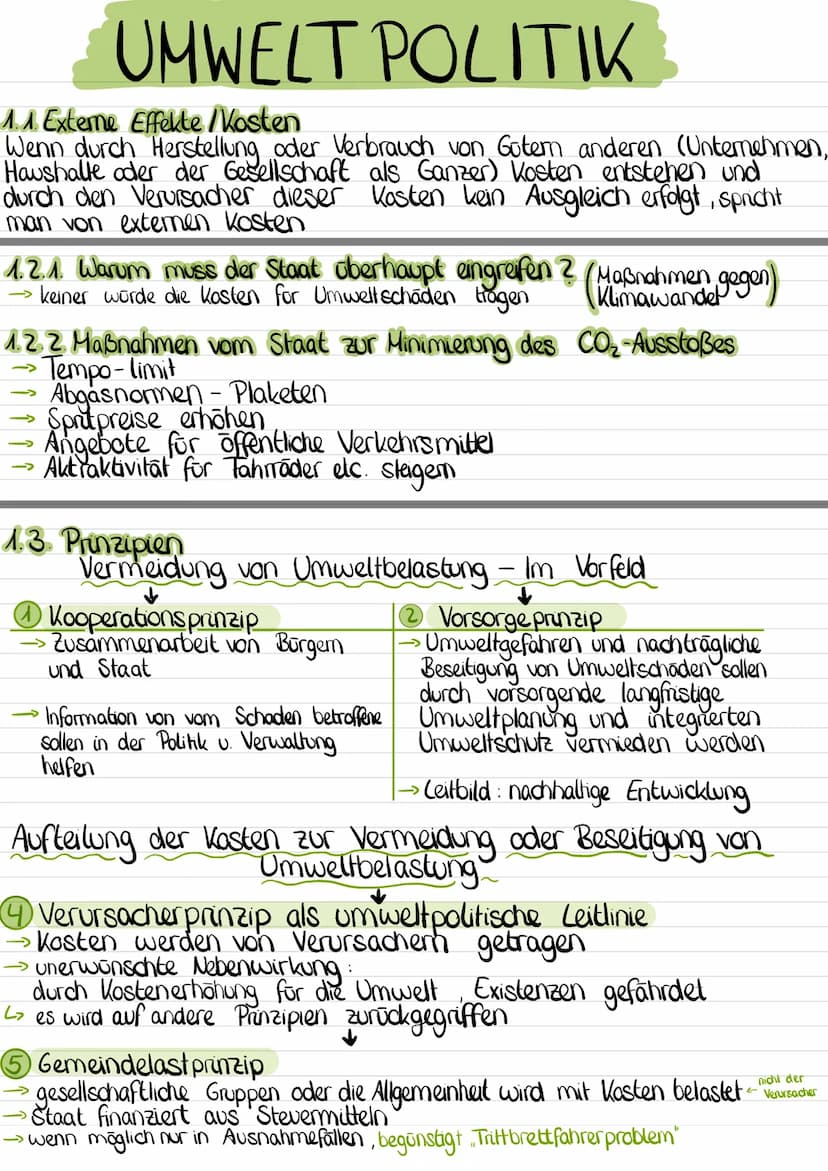 UMWELTPOLITIK
1.1. Externe Effekte/Kosten
Wenn durch Herstellung oder Verbrauch von Gütern anderen (Unternehmen,
Haushalte oder der Gesellschaft als Ganzer) Kosten entstehen und
durch den Verursacher dieser Kosten kein Ausgleich erfolgt, spricht
man von externen Kosten
1.2.1. Warum muss der Staat überhaupt eingreifen? (Maßnahmen gegen
Klimawandel)
→ keiner würde die Kosten für Umweltschäden tragen
1.2.2 Maßnahmen vom Staat zur Minimierung des CO₂-Ausstoßes
→ Tempo-limit
→ Abgasnormen - Plaketen
→ Spritpreise erhöhen
→ Angebote für öffentliche Verkehrsmittel
→ Aktraktivität für Fahrräder etc. steigern
1.3. Prinzipien
Vermeidung von Umweltbelastung – Im Vorfeld
↓ ↓
① Kooperationsprinzip
→ Zusammenarbeit von Bürgern
und Staat
→ Information von vom Schaden betroffene
sollen in der Politik u. Verwaltung
helfen
② Vorsorgeprinzip
→ Umweltgefahren und nachträgliche
Beseitigung von Umweltschäden sollen
durch vorsorgende langfristige
Umweltplanung und integrierten
Umweltschutz vermieden werden
→ Leitbild: nachhaltige Entwicklung
Aufteilung der Kosten zur Vermeidung oder Beseitigung von
Umweltbelastung
↓
④ Verursacherprinzip als umweltpolitische Leitlinie
→ Kosten werden von Verursachern getragen
→ unerwünschte Nebenwirkung:
durch Kostenerhöhung für die Umwelt, Existenzen gefährdet
↳ es wird auf andere Prinzipien zurückgegriffen
↓
⑤ Gemeindelastprinzip
→ gesellschaftliche Gruppen oder die Allgemeinheit wird mit Kosten belastet ← nicht der
Verursacher
→ Staat finanziert aus Steuermitteln
→ wenn möglich nur in Ausnahmefällen, begünstigt „Trittbrettfahrerproblem"